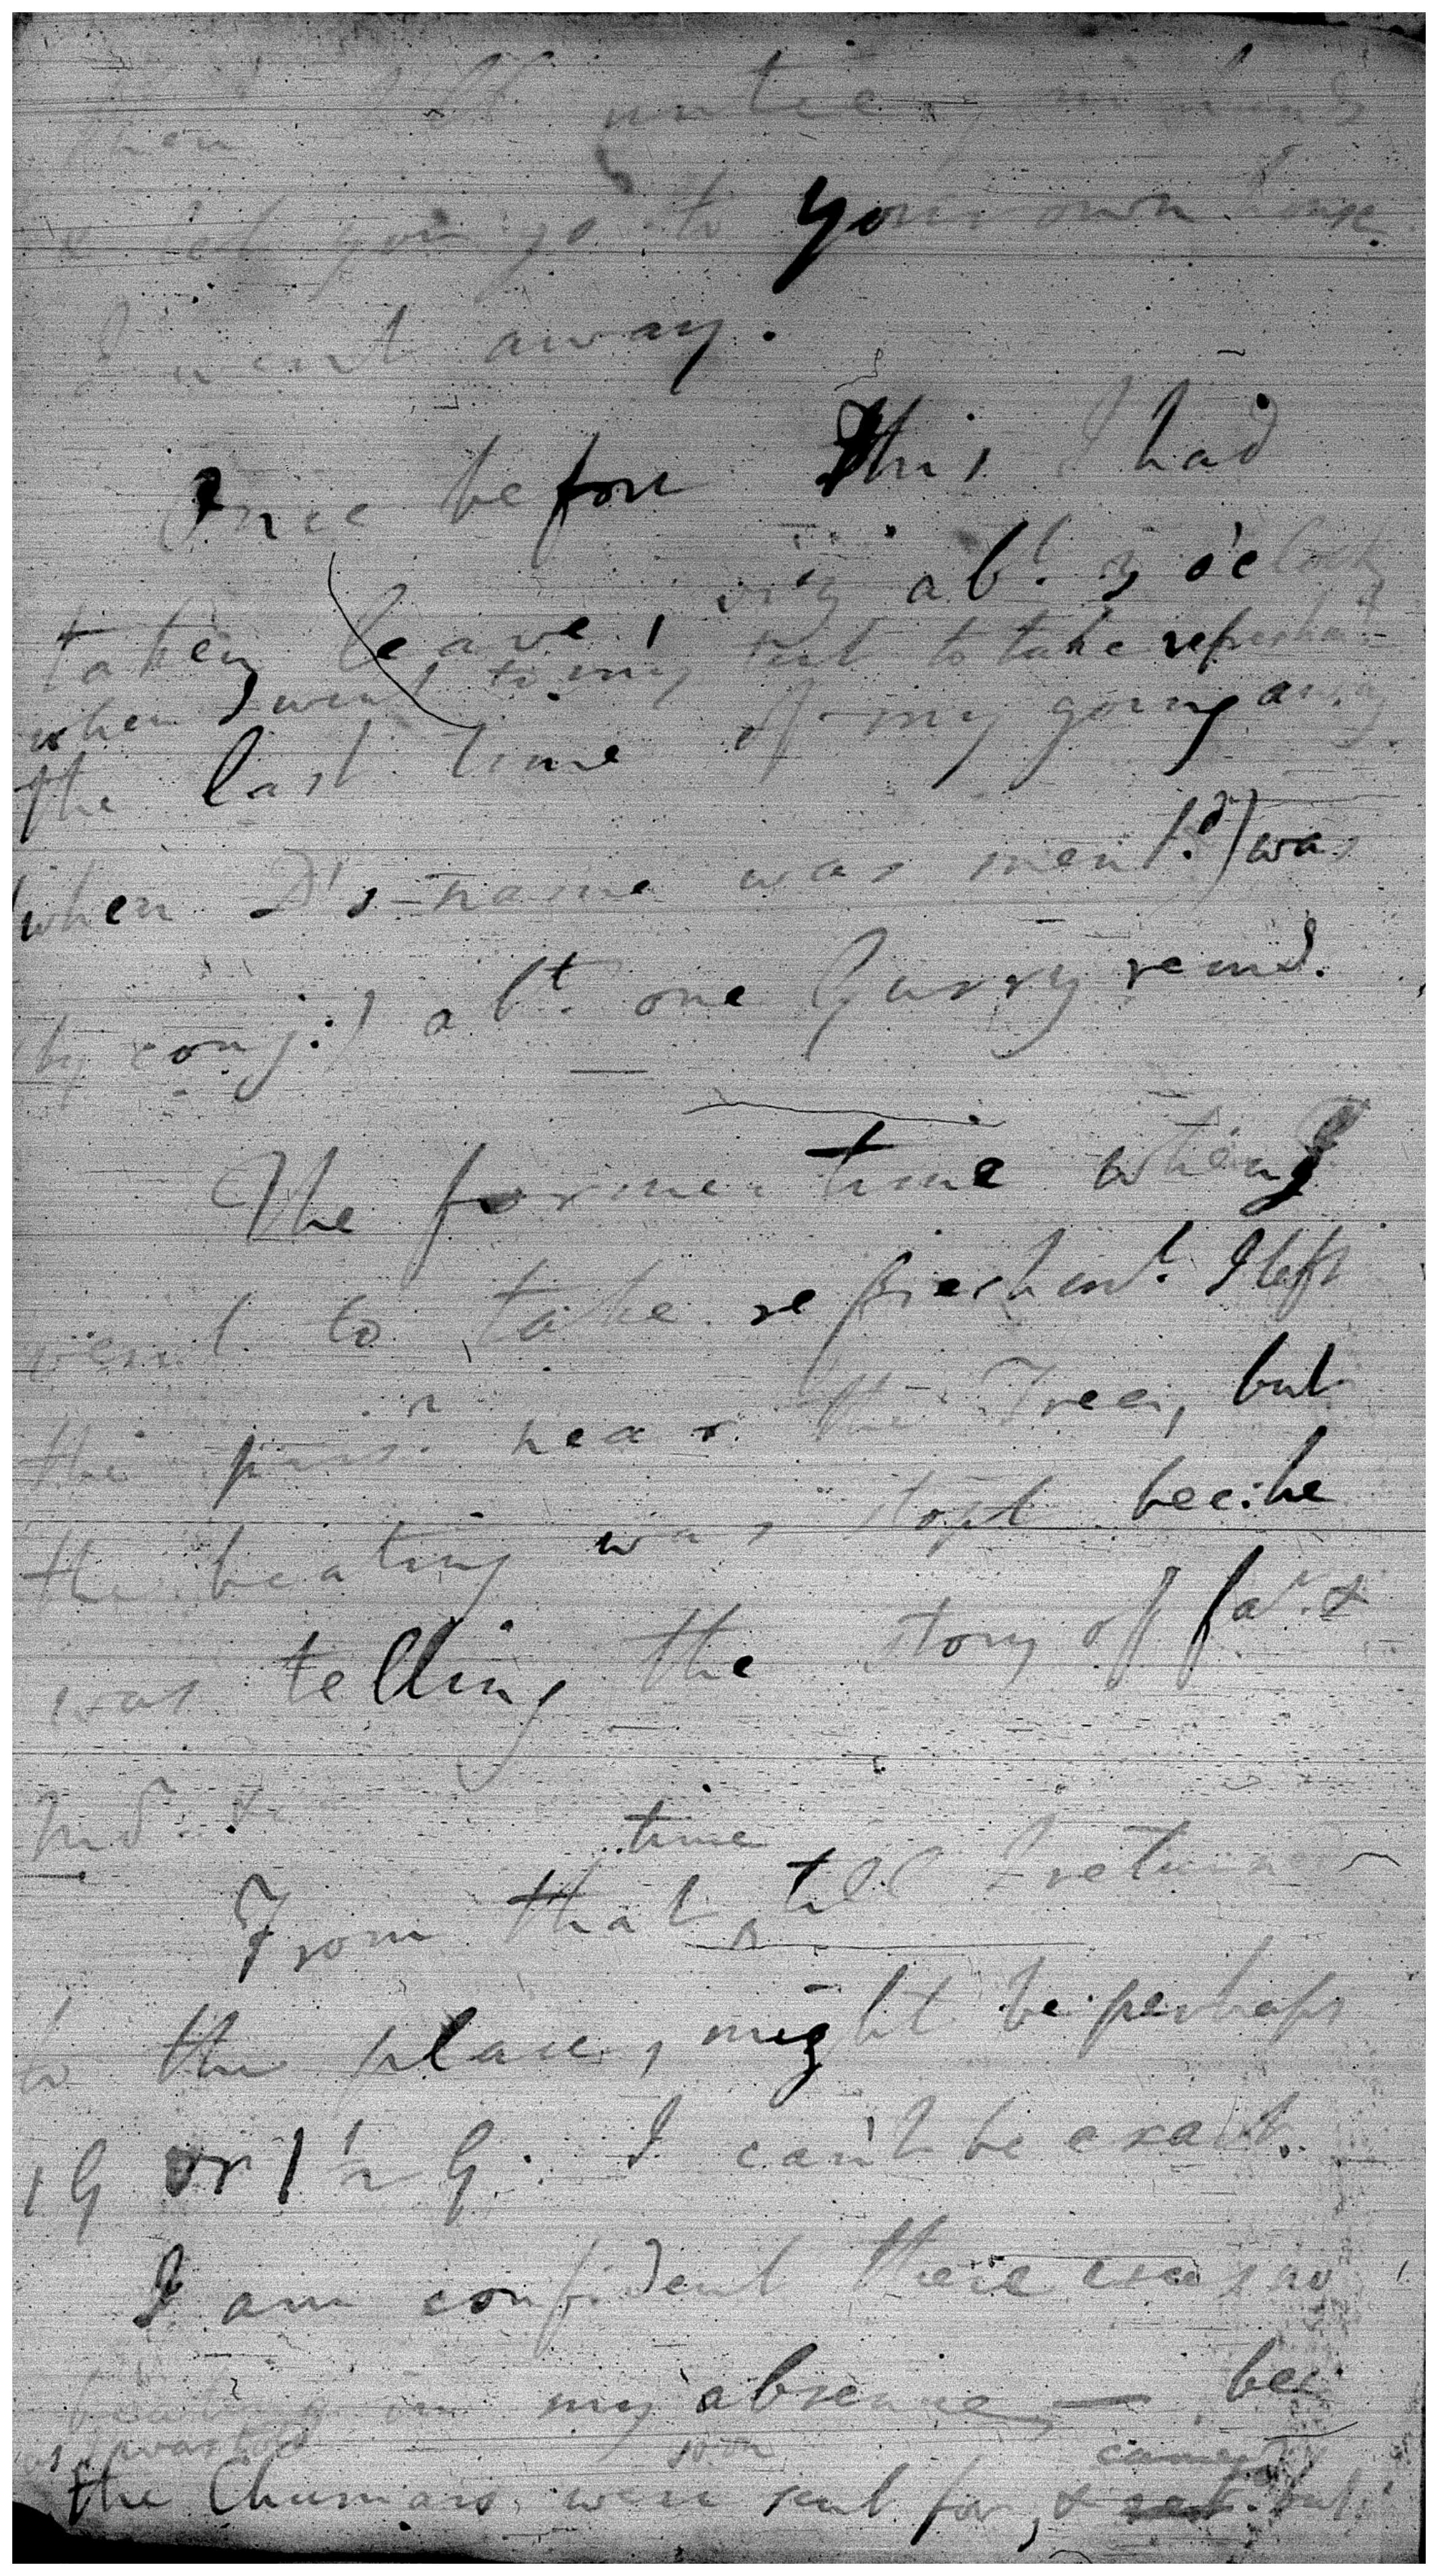 then untie my hands
& let you go to your own house.
I went away.
Once before this I had
taken leave, viz abt. 3 o'clock
when I went to my tent to take refreshmt.
the last time of my going away
when D's name was ment.d) was
by conj:) abt. one Gurry remd.
The former time when I
went to take refreshmt. I left
the prisr. near the Tree, but
the beating was stopt bec: he
was telling the story of far. &
md. &
time
From that ^ till I returned
to the place, might be perhaps
1 G or 1 1/2 G. I can't be exact.
I am confident there was no
beating in my absence — bec:
as I was told soon came
the Chumars were sent for, &